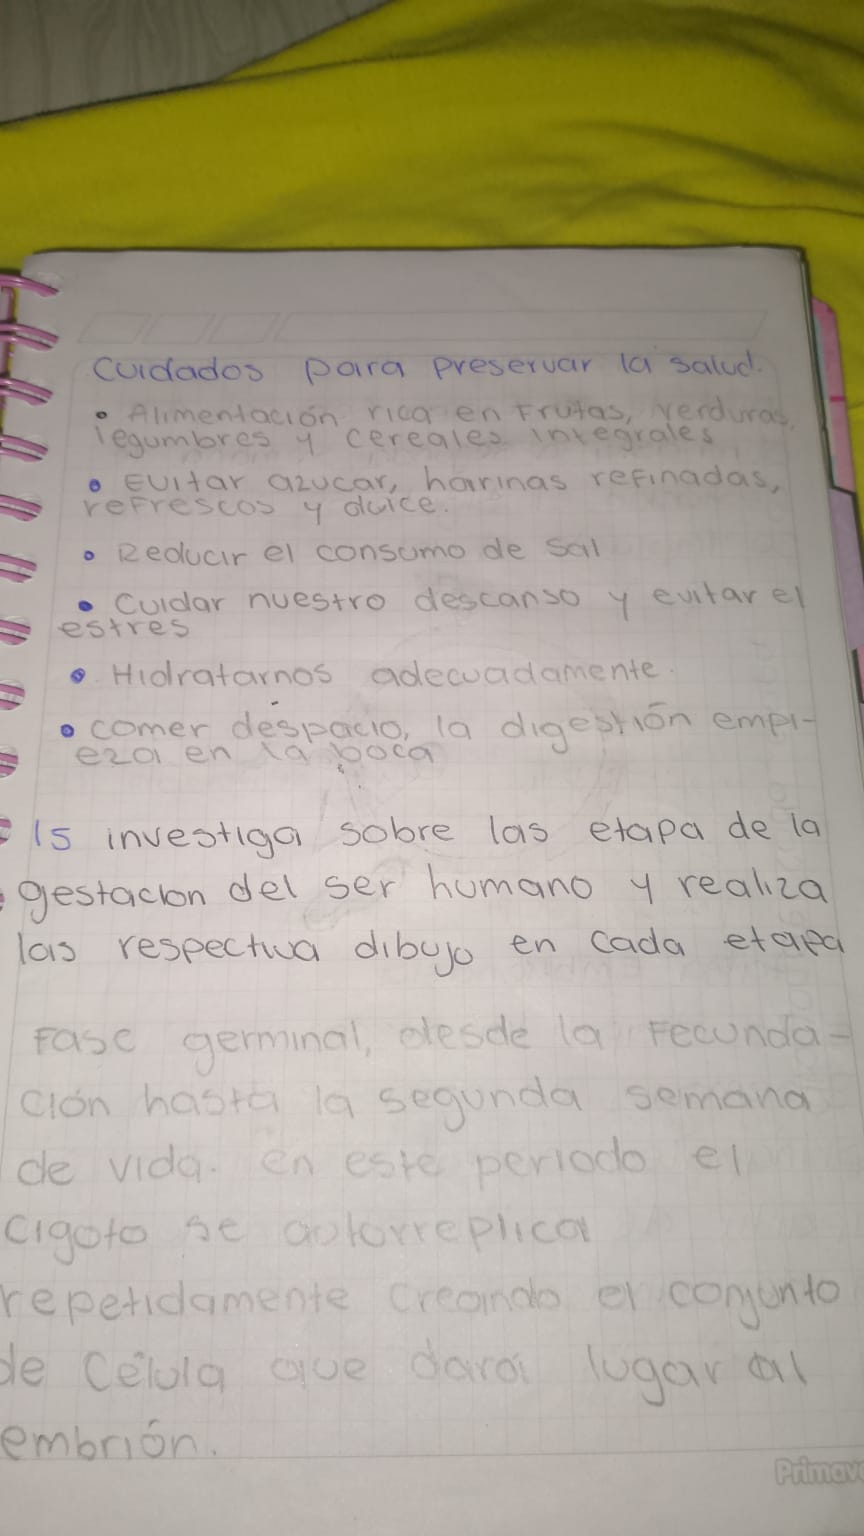 Cuidados para preservar la salud.
• Alimentación rica en Frutas, verduras,
legumbres y cereales integrales
• Evitar azucar, harinas refinadas,
refrescos y dulce.
• Reducir el consumo de sal
• Cuidar nuestro descanso y evitar el
estres
• Hidratarnos adecuadamente.
• comer despacio, la digestión empi-
eza en la boca
15 investiga sobre las etapa de la
gestacion del ser humano y realiza
las respectiva dibujo en cada etapa
Fase germinal, desde la Fecunda-
ción hasta la segunda semana
de vida. en este periodo el
cigoto se autorreplica
repetidamente creando el conjunto
de Célula que dará lugar al
embrión.